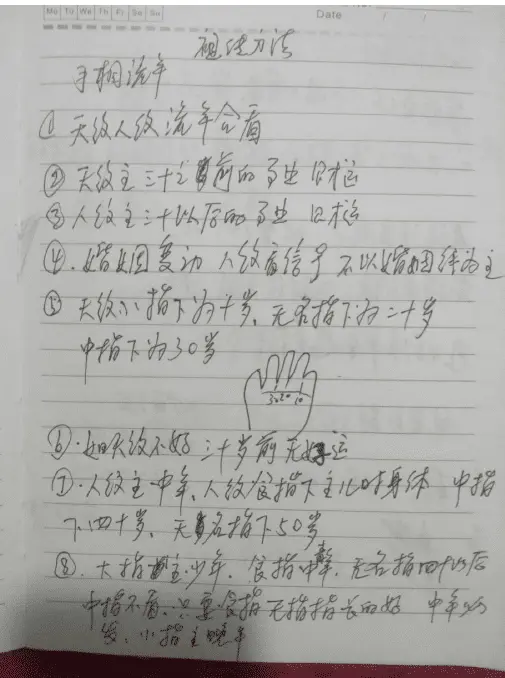 Mo Tu We Th Fr Sa Su
Date / /
方法
手相流年
① 天纹人纹流年合看
② 天纹主三十之前的事业 旧楼运
③ 人纹主三十以后的事业 旧楼运
④. 婚姻变动 人纹有信号 不以婚姻线为主
⑤ 天纹小指下为十岁、无名指下为二十岁
中指下为30岁
30 20 10
⑥. 如天纹不好 三十岁前无好运
⑦. 人纹主中年、人纹食指下主儿时身体 中指
下四十岁、无名指下50岁
⑧. 大指主少年、食指中年、无名指四十以后
中指不看、只重食指无指指长的好 中年必
发、小指主晚年